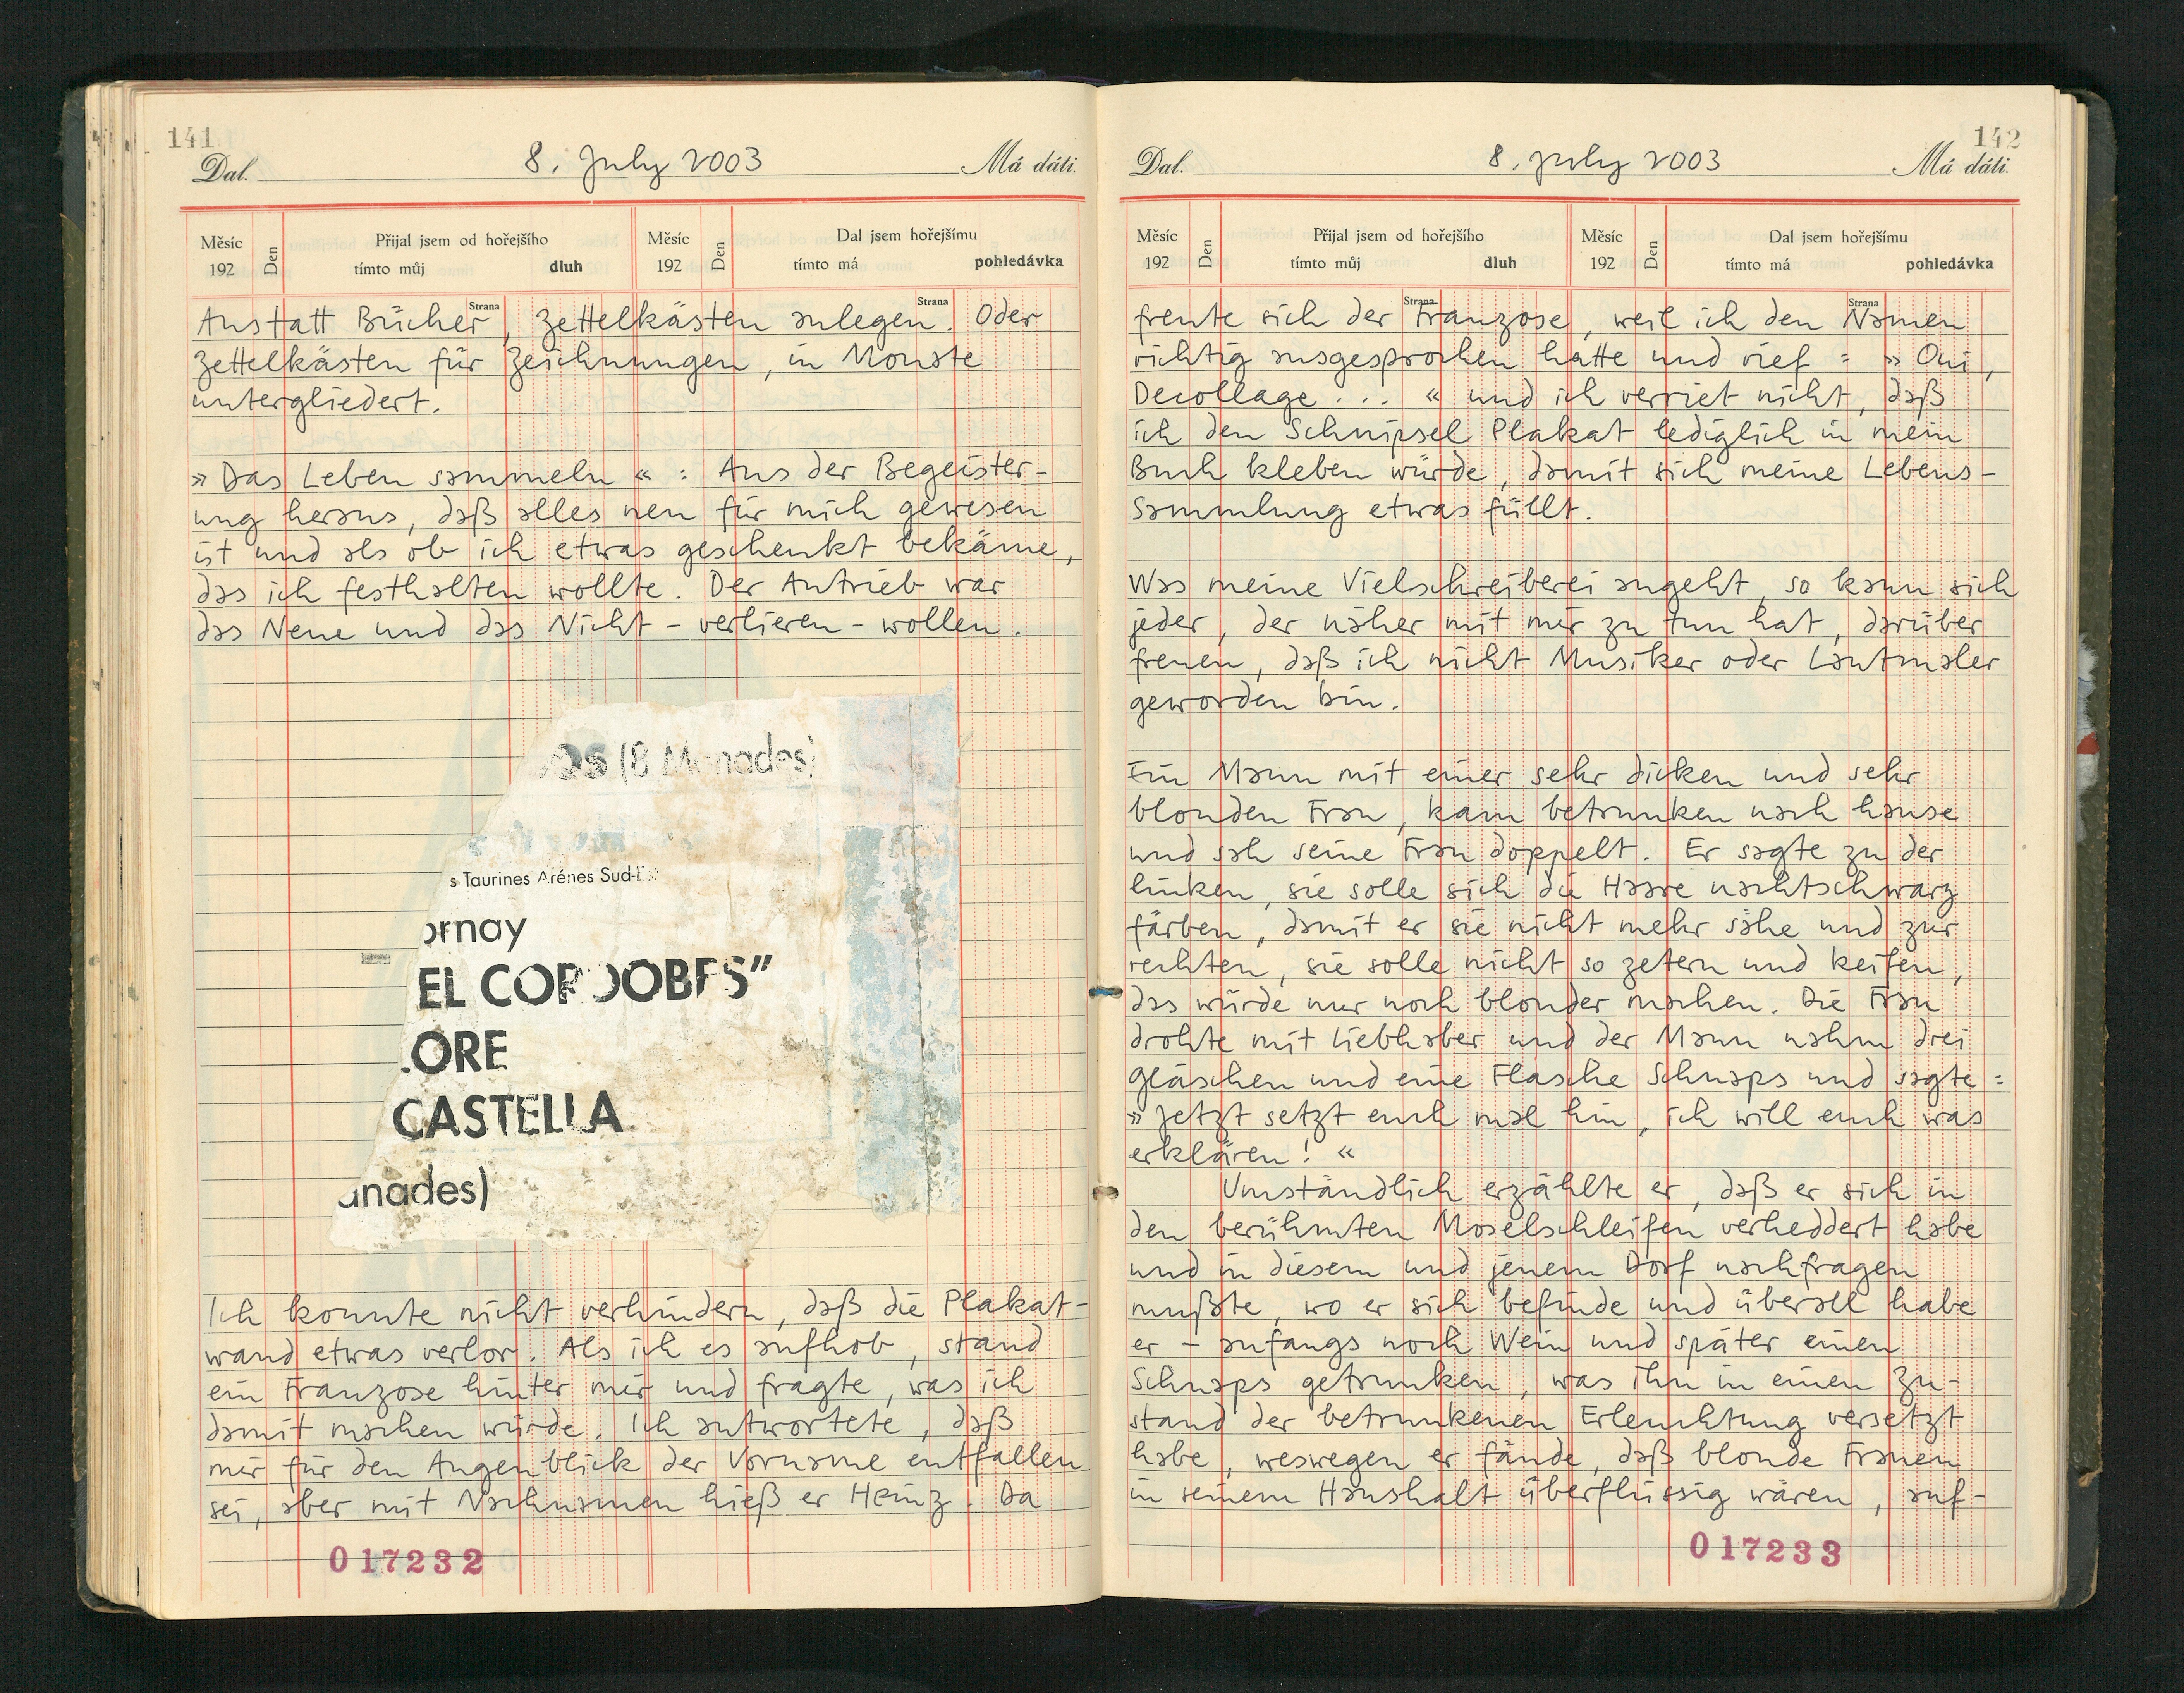 141
Dal. 8. July 2003 Má dáti.
Měsíc 192 Den Přijal jsem od hořejšího tímto můj dluh Měsíc 192 Den Dal jsem hořejšímu tímto má pohledávka
Strana Strana
Anstatt Bücher, Zettelkästen anlegen. Oder
Zettelkästen für Zeichnungen, in Monate
untergliedert.
» Das Leben sammeln « : Aus der Begeister-
ung heraus, daß alles neu für mich gewesen
ist und als ob ich etwas geschenkt bekäme,
das ich festhalten wollte. Der Antrieb war
das Neue und das Nicht-verlieren-wollen.
os (8 Manades)
s Taurines Arénes Sud-E
ornay
EL CORDOBES”
LORE
CASTELLA
anades)
Ich konnte nicht verhindern, daß die Plakat-
wand etwas verlor. Als ich es aufhob, stand
ein Franzose hinter mir und fragte, was ich
damit machen würde. Ich antwortete, daß
mir für den Augenblick der Vorname entfallen
sei, aber mit Nachnamen hieß er Heinz. Da
017232
142
Dal. 8. July 2003 Má dáti.
Měsíc 192 Den Přijal jsem od hořejšího tímto můj dluh Měsíc 192 Den Dal jsem hořejšímu tímto má pohledávka
Strana Strana
freute sich der Franzose, weil ich den Namen
richtig ausgesprochen hatte und rief : » Oui,
Decollage ... « und ich verriet nicht, daß
ich den Schnipsel Plakat lediglich in mein
Buch kleben würde, damit sich meine Lebens-
sammlung etwas füllt.
Was meine Vielschreiberei angeht, so kann sich
jeder, der näher mit mir zu tun hat, darüber
freuen, daß ich nicht Musiker oder Lautmaler
geworden bin.
Ein Mann mit einer sehr dicken und sehr
blonden Frau, kam betrunken nach hause
und sah seine Frau doppelt. Er sagte zu der
linken, sie solle sich die Haare nachtschwarz
färben, damit er sie nicht mehr sähe und zur
rechten, sie solle nicht so zetern und keifen,
das würde nur noch blonder machen. Die Frau
drohte mit Liebhaber und der Mann nahm drei
Gläschen und eine Flasche Schnaps und sagte :
» Jetzt setzt euch mal hin, ich will euch was
erklären ! «
Umständlich erzählte er, daß er sich in
den berühmten Moselschleifen verheddert habe
und in diesem und jenem Dorf nachfragen
mußte, wo er sich befinde und überall habe
er – anfangs noch Wein und später einen
Schnaps getrunken, was ihn in einen Zu-
stand der betrunkenen Erleuchtung versetzt
habe, weswegen er fände, daß blonde Frauen
in seinem Haushalt überflüssig wären, auf-
017233